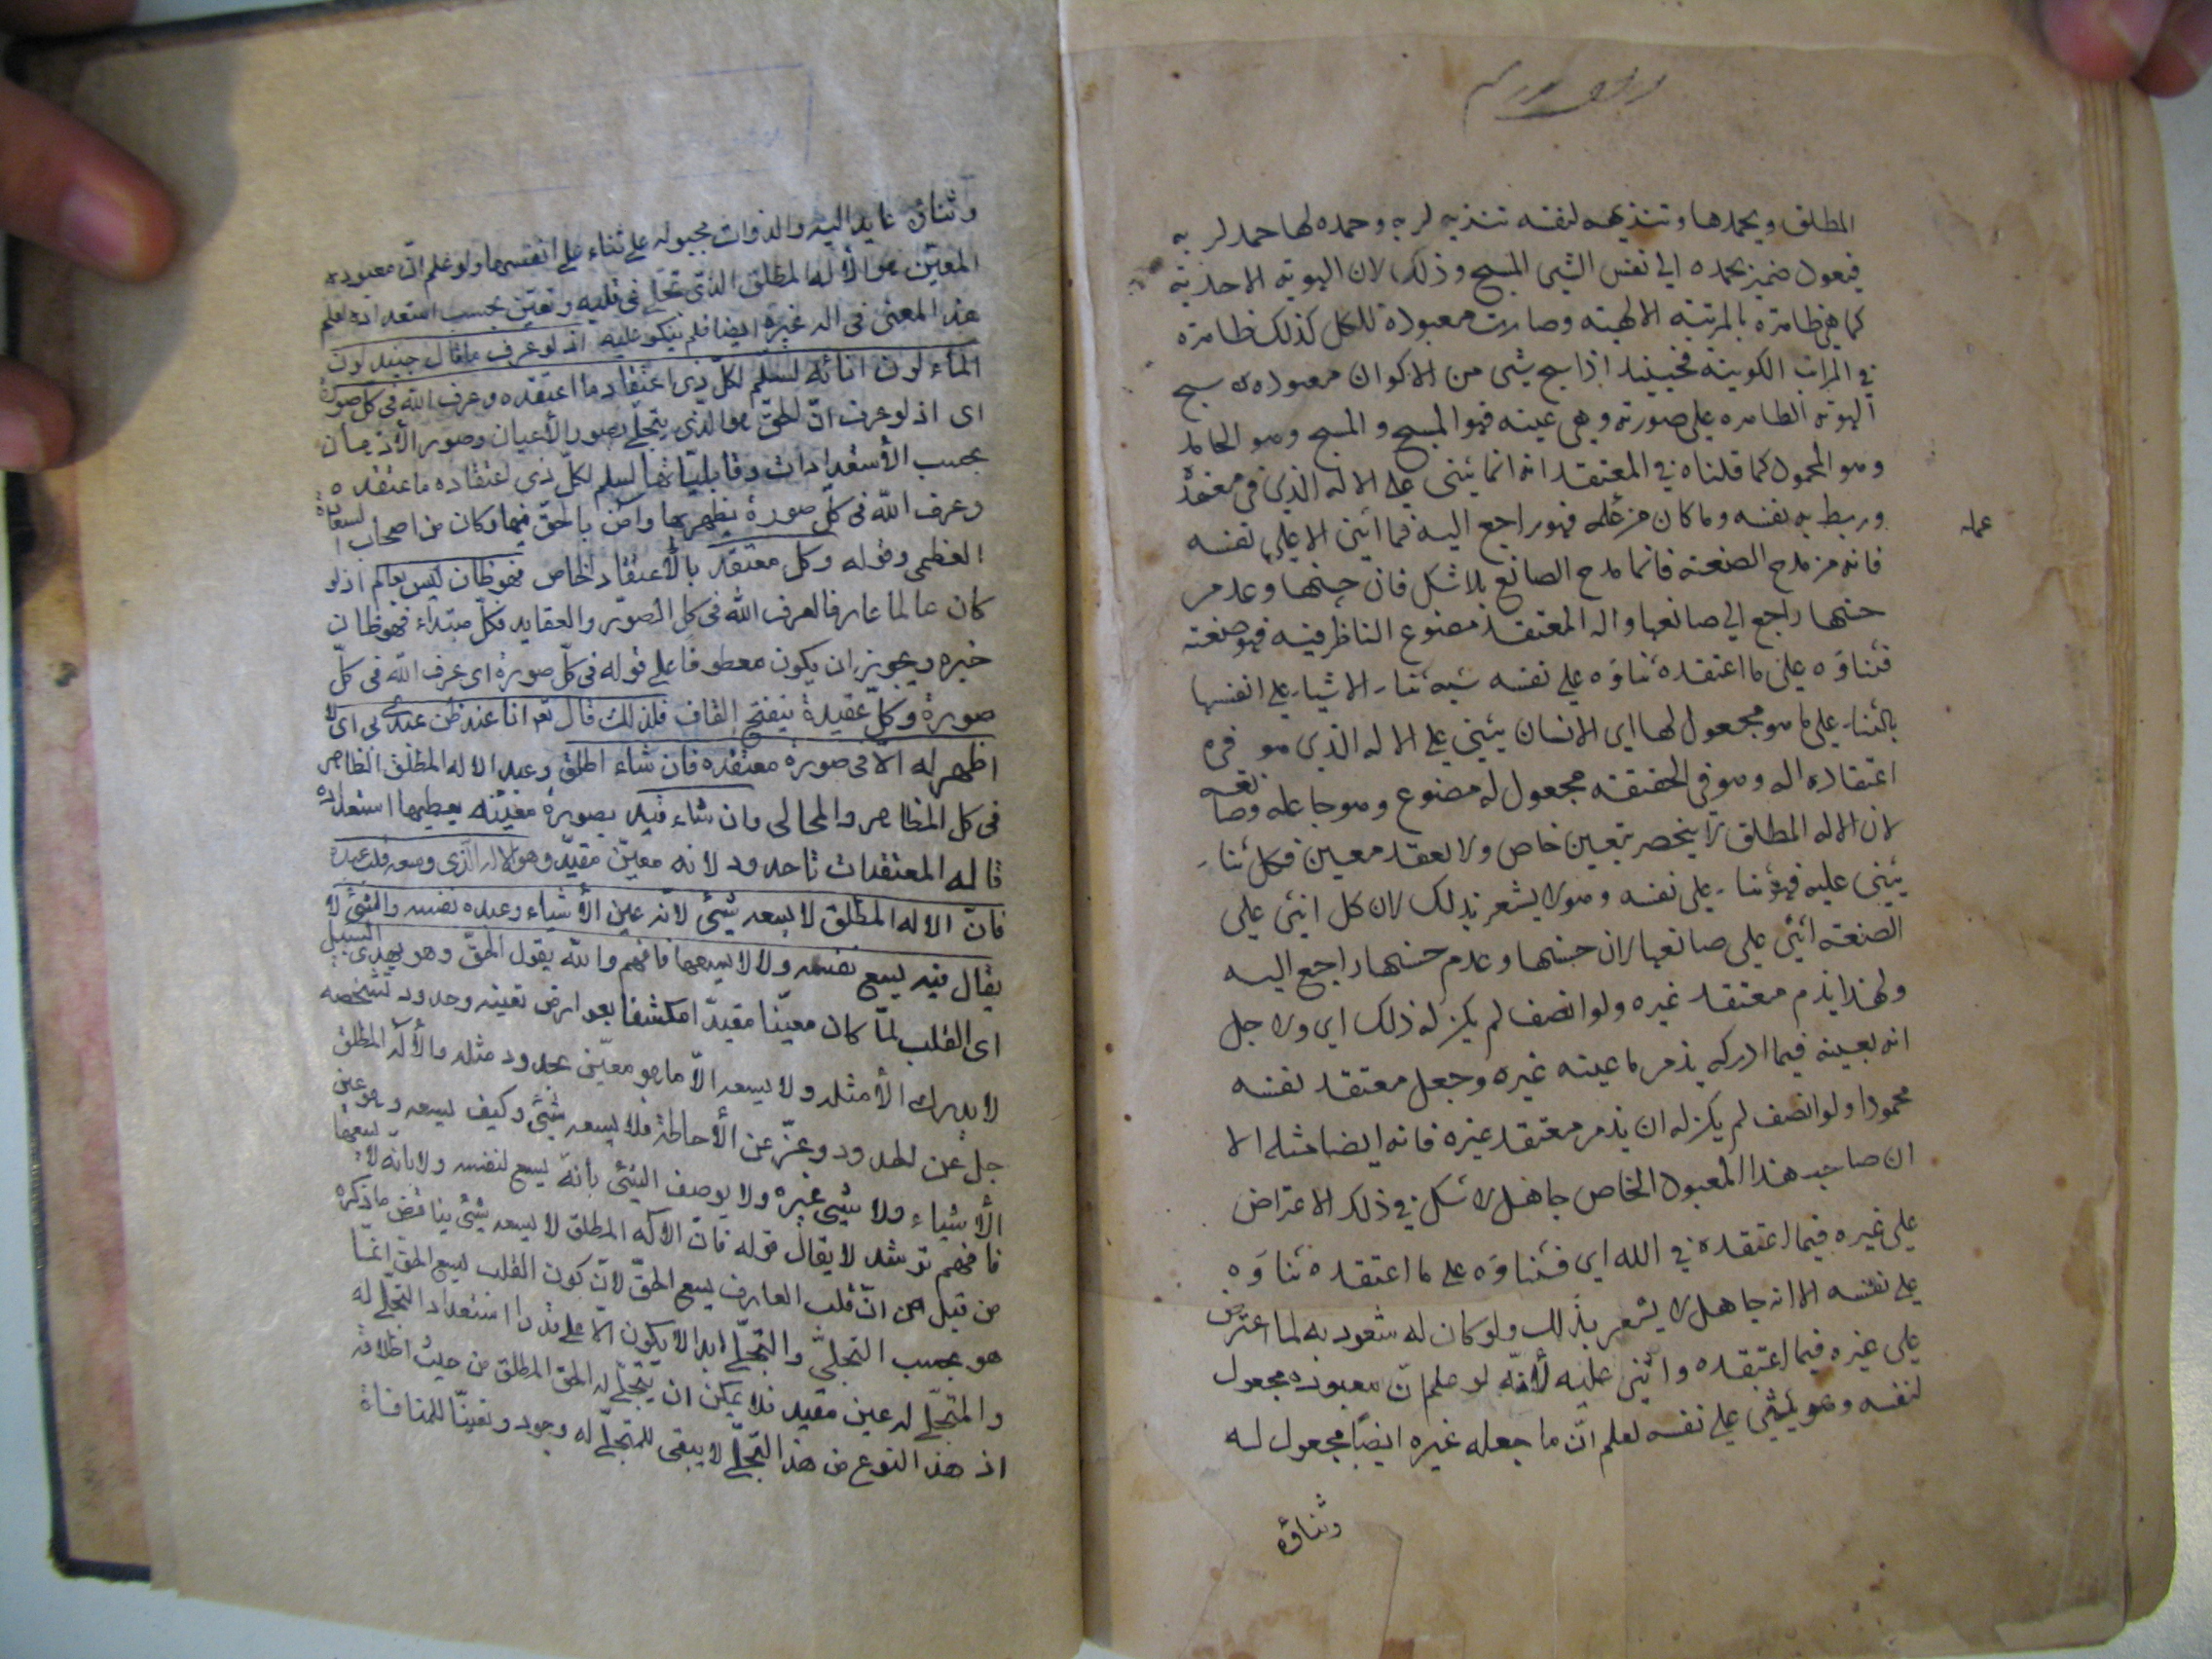 المطلق ويحمدها وتنزيهه لنفسه تنزيه لربه وحمده لها حمد لربه
فيعود ضمير بحمده الى نفس الشئ المسبح وذلك لان الهوية الاحدية
كما هي ظاهرة بالمرتبة الالهية وصارت معبودة للكل كذلك ظاهرة
في المراتب الكونية فحينئذ اذا سبح شئ من الاكوان معبوده سبح
الهوية الظاهرة على صورته وهي عينه فهو المسبح والمسبح وهو الحامد
وهو المحمود كما قلناه في المعتقد انه انما يثنى على الاله الذي في معتقده
وربط به نفسه وما كان من عمله فهو راجع اليه فما اثنى الا على نفسه
عمله
فانه من مدح الصنعة فانما مدح الصانع بلا شك فان حسنها وعدم
حسنها راجع الى صانعها واله المعتقد مصنوع الناظر فيه فهو صنعته
فثناؤه على ما اعتقده ثناؤه على نفسه شبه ثناء الاشياء على انفسها
بالثناء على ما هو مجعول لها اى الانسان يثنى على الاله الذي هو في
اعتقاده اله وهو في الحقيقة مجعول له مصنوع وهو جاعله وصانعه
لان الاله المطلق لا ينحصر بتعين خاص ولا لعقد معين فكل ثناء
يثنى عليه فهو ثناء على نفسه وهو لا يشعر بذلك لان كل اثنى على
الصنعة اثنى على صانعها لان حسنها وعدم حسنها راجع اليه
ولهذا يذم معتقد غيره ولو انصف لم يكن له ذلك اى ولاجل
انه بعينه فيما ادركه يذم ما عينه غيره وجعل معتقد نفسه
محمودا ولو انصف لم يكن له ان يذم معتقد غيره فانه ايضا مثله الا
ان صاحب هذا المعبود الخاص جاهل بلا شك في ذلك الاعتراض
على غيره فيما اعتقده في الله اى فثناؤه على ما اعتقده ثناؤه
على نفسه الا انه جاهل لا يشعر بذلك ولو كان له شعور به لما اعترض
على غيره فيما اعتقده واثنى عليه لأنّه لو علم انّ معبوده مجعول
لنفسه وهو يثنى على نفسه لعلم انّ ما جعله غيره ايضًا مجعول له
وثناؤه
وثناؤه عايد اليه والذوات مجبوله على ثناء على انفسها ولو علم انّ معبوده
المعيّن هو الأله المطلق الذّى تجلّى فى قلبه وتعيّن بحسب استعداده لعلم
هذا المعنى فى اله غيره ايضا فلم ينكر عليه اذ لو عرف ما قال جنيد لون
الماء لون انائه لسلّم لكلّ ذى اعتقاد ما اعتقده وعرف الله فى كلّ صورة
اى اذ لو عرف انّ الحقّ هو الّذى يتجلّى بصور الأعيان وصور الأذهان
بحسب الأستعدادات وقابليّاتها لسلم لكلّ ذى اعتقاده ما اعتقده
وعرف الله فى كلّ صورة يظهر بها وآمن بالحقّ فيها وكان من اصحاب السعادة
العظمى وقوله وكل معتقد بالأعتقاد الخاص فهو ظان ليس بعالم اذ لو
كان عالما عارفا لعرف الله فى كل الصوّر والعقايد فكلّ مبتداء فهو ظان
خبره ويجوز ان يكون معطوفا على قوله فى كلّ صورة اى عرف الله فى كلّ
صورة وكلّ عقيدة بفتح القاف فلذلك قال تعم انا عند ظن عبدى بى اى لا
اظهر له الّا فى صورة معتقده فان شاء اطلق وعبد الاله المطلق الظاهر
فى كل المظاهر والمجالى وان شاء قيد بصورة معيّنه يعطيها استعداده
فاله المعتقدات تاحدود لانه معيّن مقيّد وهو الاله الّذى وسعه قلب عبده
فانّ الاله المطلق لا يسعه شئ لانّه عين الأشياء وعين نفسه والشئ لا
يقال فيه يسع نفسه ولا لا يسعها فافهم والله يقول الحقّ وهو يهدى السبيل
اى القلب لمّا كان معيّنا مقيدّا مكتنفا بعوارض تعينه وحدود تشخصه
لا يدرك الأمثله ولا يسعه الّا ما هو معيّن محدود مثله والأله المطلق
جلّ عن الحدود وعزّ عن الأحاطة فلا يسعه شئ وكيف يسعه وهو عين
الأشياء ولا شئ غيره ولا يوصف الشئ بأنّه يسع لنفسه ولا بانّه لا يسعها
فافهم ترشد لا يقال قوله فانّ الاله المطلق لا يسعه شئ يناقض ما ذكره
من قبل من انّ قلب العارف يسع الحقّ لانّ كون القلب يسع الحق انّما
هو بحسب التجلىّ والتجلّى ابدا لا يكون الّا على قدر استعداد المتجلّى له
والمتجلّى له عين مقيد فلا يمكن ان يتجلّى له الحق المطلق من حيث اطلاقه
اذ هذا النوع من هذا التجلّى لا يبقى للمتجلّى له وجود وتعينّا للمنافاة